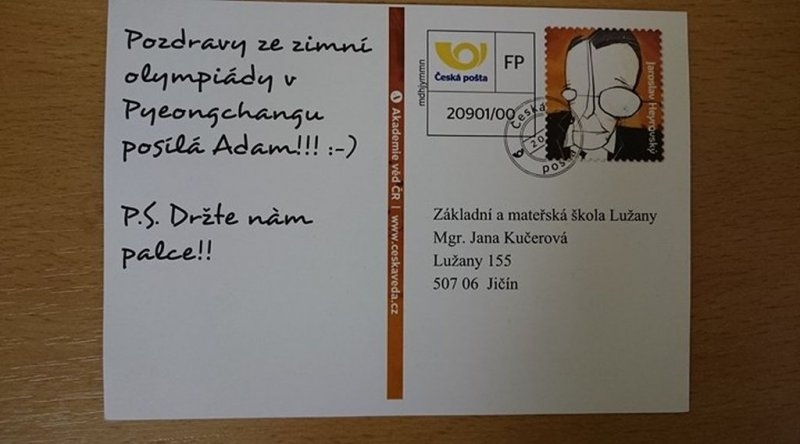 Pozdravy ze zimní
olympiády v
Pyeongchangu
posílá Adam!!! :-)
P.S. Držte nàm
palce!!
Akademie věd ČR | www.ceskaveda.cz
mdhjymmn
Česká pošta
FP
20901/00
Česká
20
pošt
Jaroslav Heyrovský
Základní a mateřská škola Lužany
Mgr. Jana Kučerová
Lužany 155
507 06 Jičín